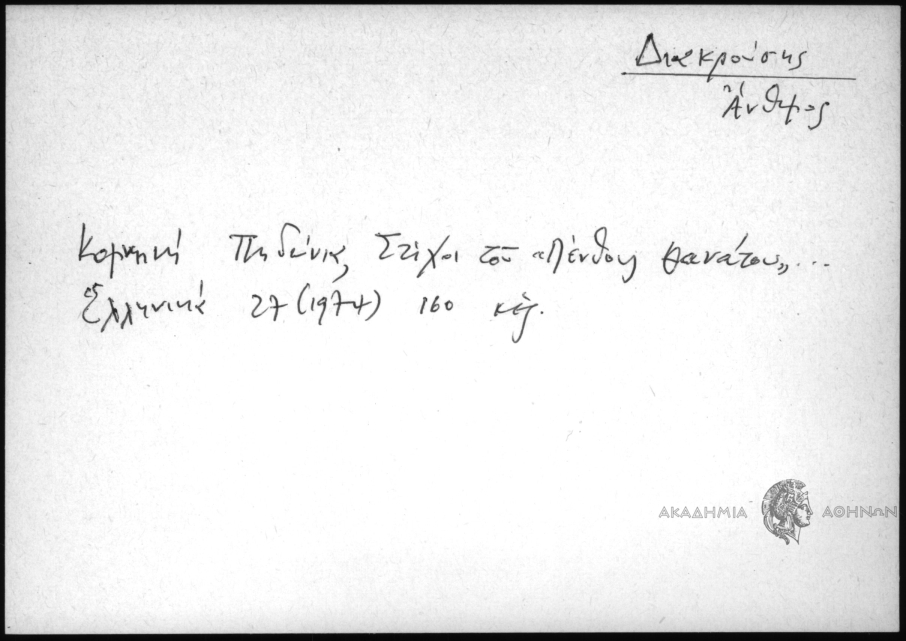 Διακρούσης
Ἄνθιμος
Κομνηνή Πηδώνια, Στίχοι τοῦ «Πένθους θανάτου»...
Ἑλληνικά 27 (1974) 160 κἑξ.
ΑΚΑΔΗΜΙΑ ΑΘΗΝΩΝ